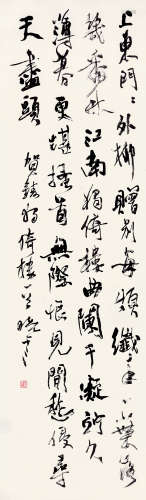 上東門〻外柳贈別每煩纖手一葉落
幾番秋江南獨倚樓曲闌干凝竚久
薄暮更堪搔首無際恨見閒愁侵尋
天盡頭
賀鑄獨倚樓一首